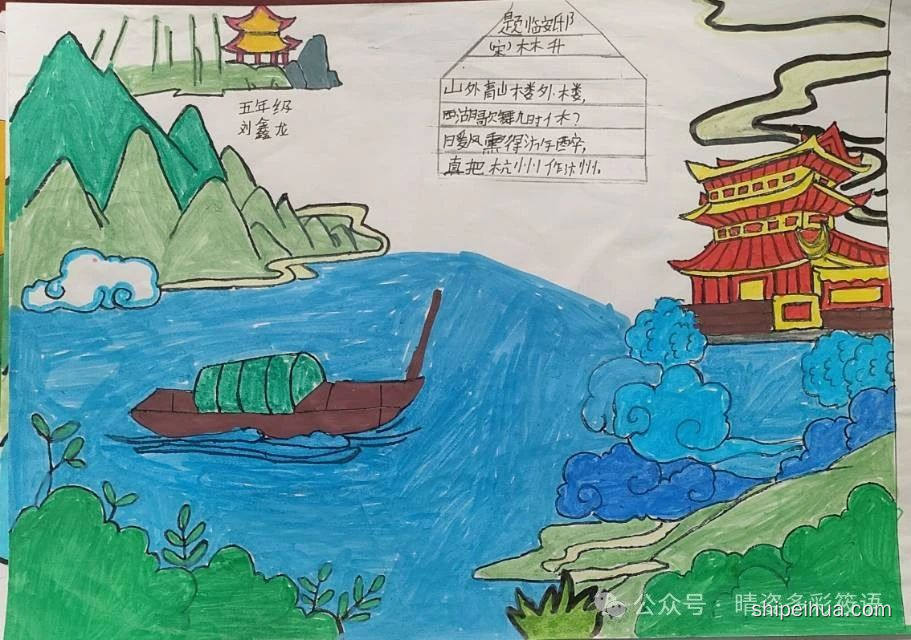 题临安邸
(宋)林升
山外青山楼外楼,
西湖歌舞几时休?
暖风熏得游人醉,
直把杭州作汴州.
五年级
刘鑫龙
公众号·晴姿多彩筱语
shipeihua.com